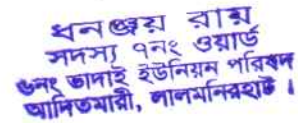 ধনঞ্জয় রায়
সদস্য ৭নং ওয়ার্ড
৬নং ভাদাই ইউনিয়ন পরিষদ
আদিতমারী, লালমনিরহাট ।